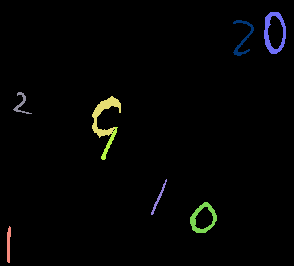 20
2 9
1 0
1